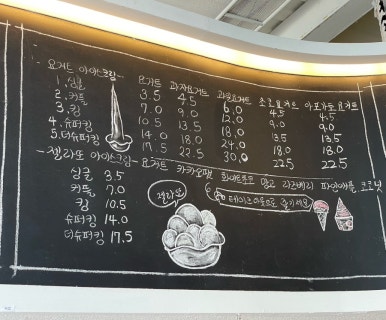 -요거트 아이스크림- 요거트 과자요거트 과일요거트 초코요거트 아포가토요거트
1. 싱글 3.5 4.5 6.0 4.5 4.5
2. 커플 7.0 9.0 12.0 9.0 9.0
3. 킹 10.5 13.5 18.0 13.5 13.5
4. 슈퍼킹 14.0 18.0 24.0 18.0 18.0
5. 더슈퍼킹 17.5 22.5 30.0 22.5 22.5
-젤라또 아이스크림- 요거트 카카오팜 화이트초코 망고 라즈베리 파인애플
싱글 3.5
커플 7.0
킹 10.5
슈퍼킹 14.0
더슈퍼킹 17.5
젤라또
테이크아웃으로 즐기세요